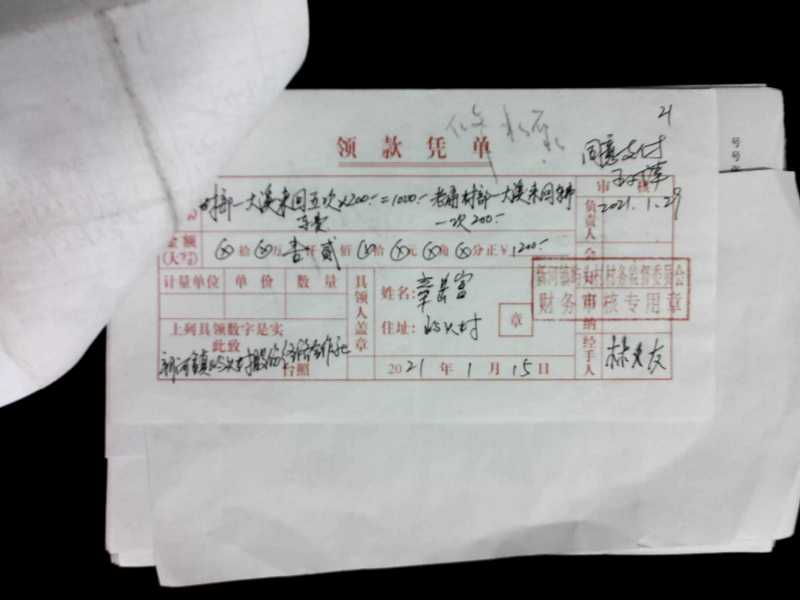 21
领款凭单
同意支付
审核
2021.1.29
村部一大溪来回五次×200.-=1000.- 老屠村部一大溪来回
车费 一次200.-
负责人
金额(大写) ⊗拾⊗万壹仟贰佰⊗拾⊗元⊗角⊗分正¥1200.-
计量单位 单价 数量
具领人盖章
姓名:
住址:屿头村
章
新河镇屿头村村务监督委员会
财务审核专用章
上列具领数字是实
此致
新河镇屿头村股份经济合作社 台照
2021年1月15日
经手人
号
号